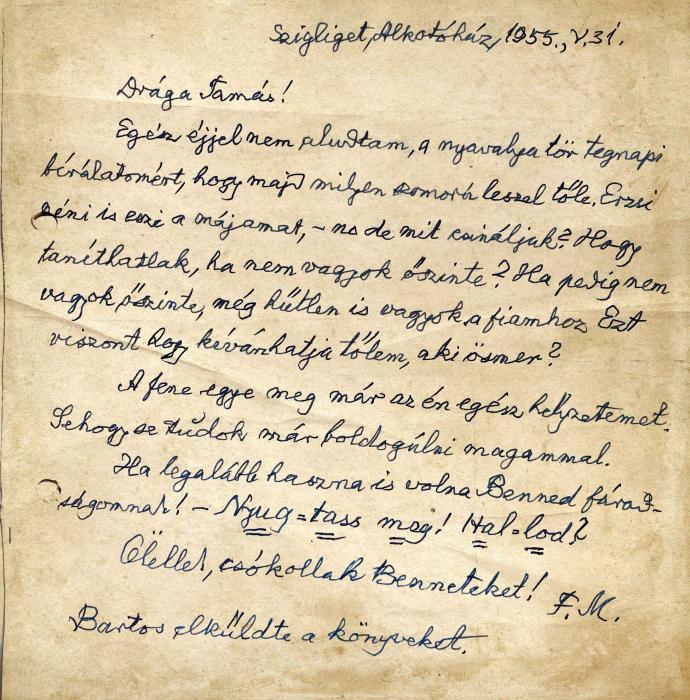 Szigliget, Alkotóház, 1955., V. 31.
Drága Tamás!
Egész éjjel nem aludtam, a nyavalya tör tegnapi
bírálatomért, hogy majd milyen szomorú leszel tőle. Erzsi
néni is eszi a májamat, – no de mit csináljuk? Hogy
taníthatlak, ha nem vagyok őszinte? Ha pedig nem
vagyok őszinte, még hűtlen is vagyok a fiamhoz Ezt
viszont hogy kévánhatja tőlem, aki ösmer?
A fene egye meg már az én egész helyzetemet.
Sehogy se tudok már boldogúlni magammal.
Ha legalább haszna is volna Benned fárad-
ságomnak! – Nyug=tass meg! Hal-lod?
Ölellek, csókollak Benneteket! F. M.
Bartos elküldte a könyveket.